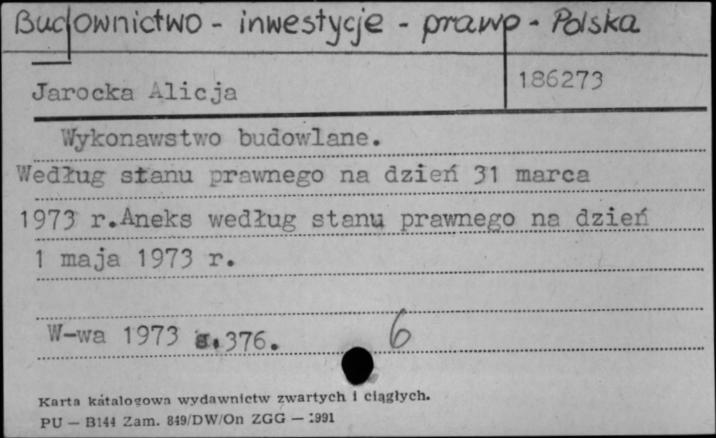 Budownictwo - inwestycje - prawo - Polska
Jarocka Alicja
186273
Wykonawstwo budowlane.
Według stanu prawnego na dzień 31 marca
1973 r.Aneks według stanu prawnego na dzień
1 maja 1973 r.
W-wa 1973 s.376.
6
Karta katalogowa wydawnictw zwartych i ciągłych.
PU — B144 Zam. 849/DW/On ZGG — 1991